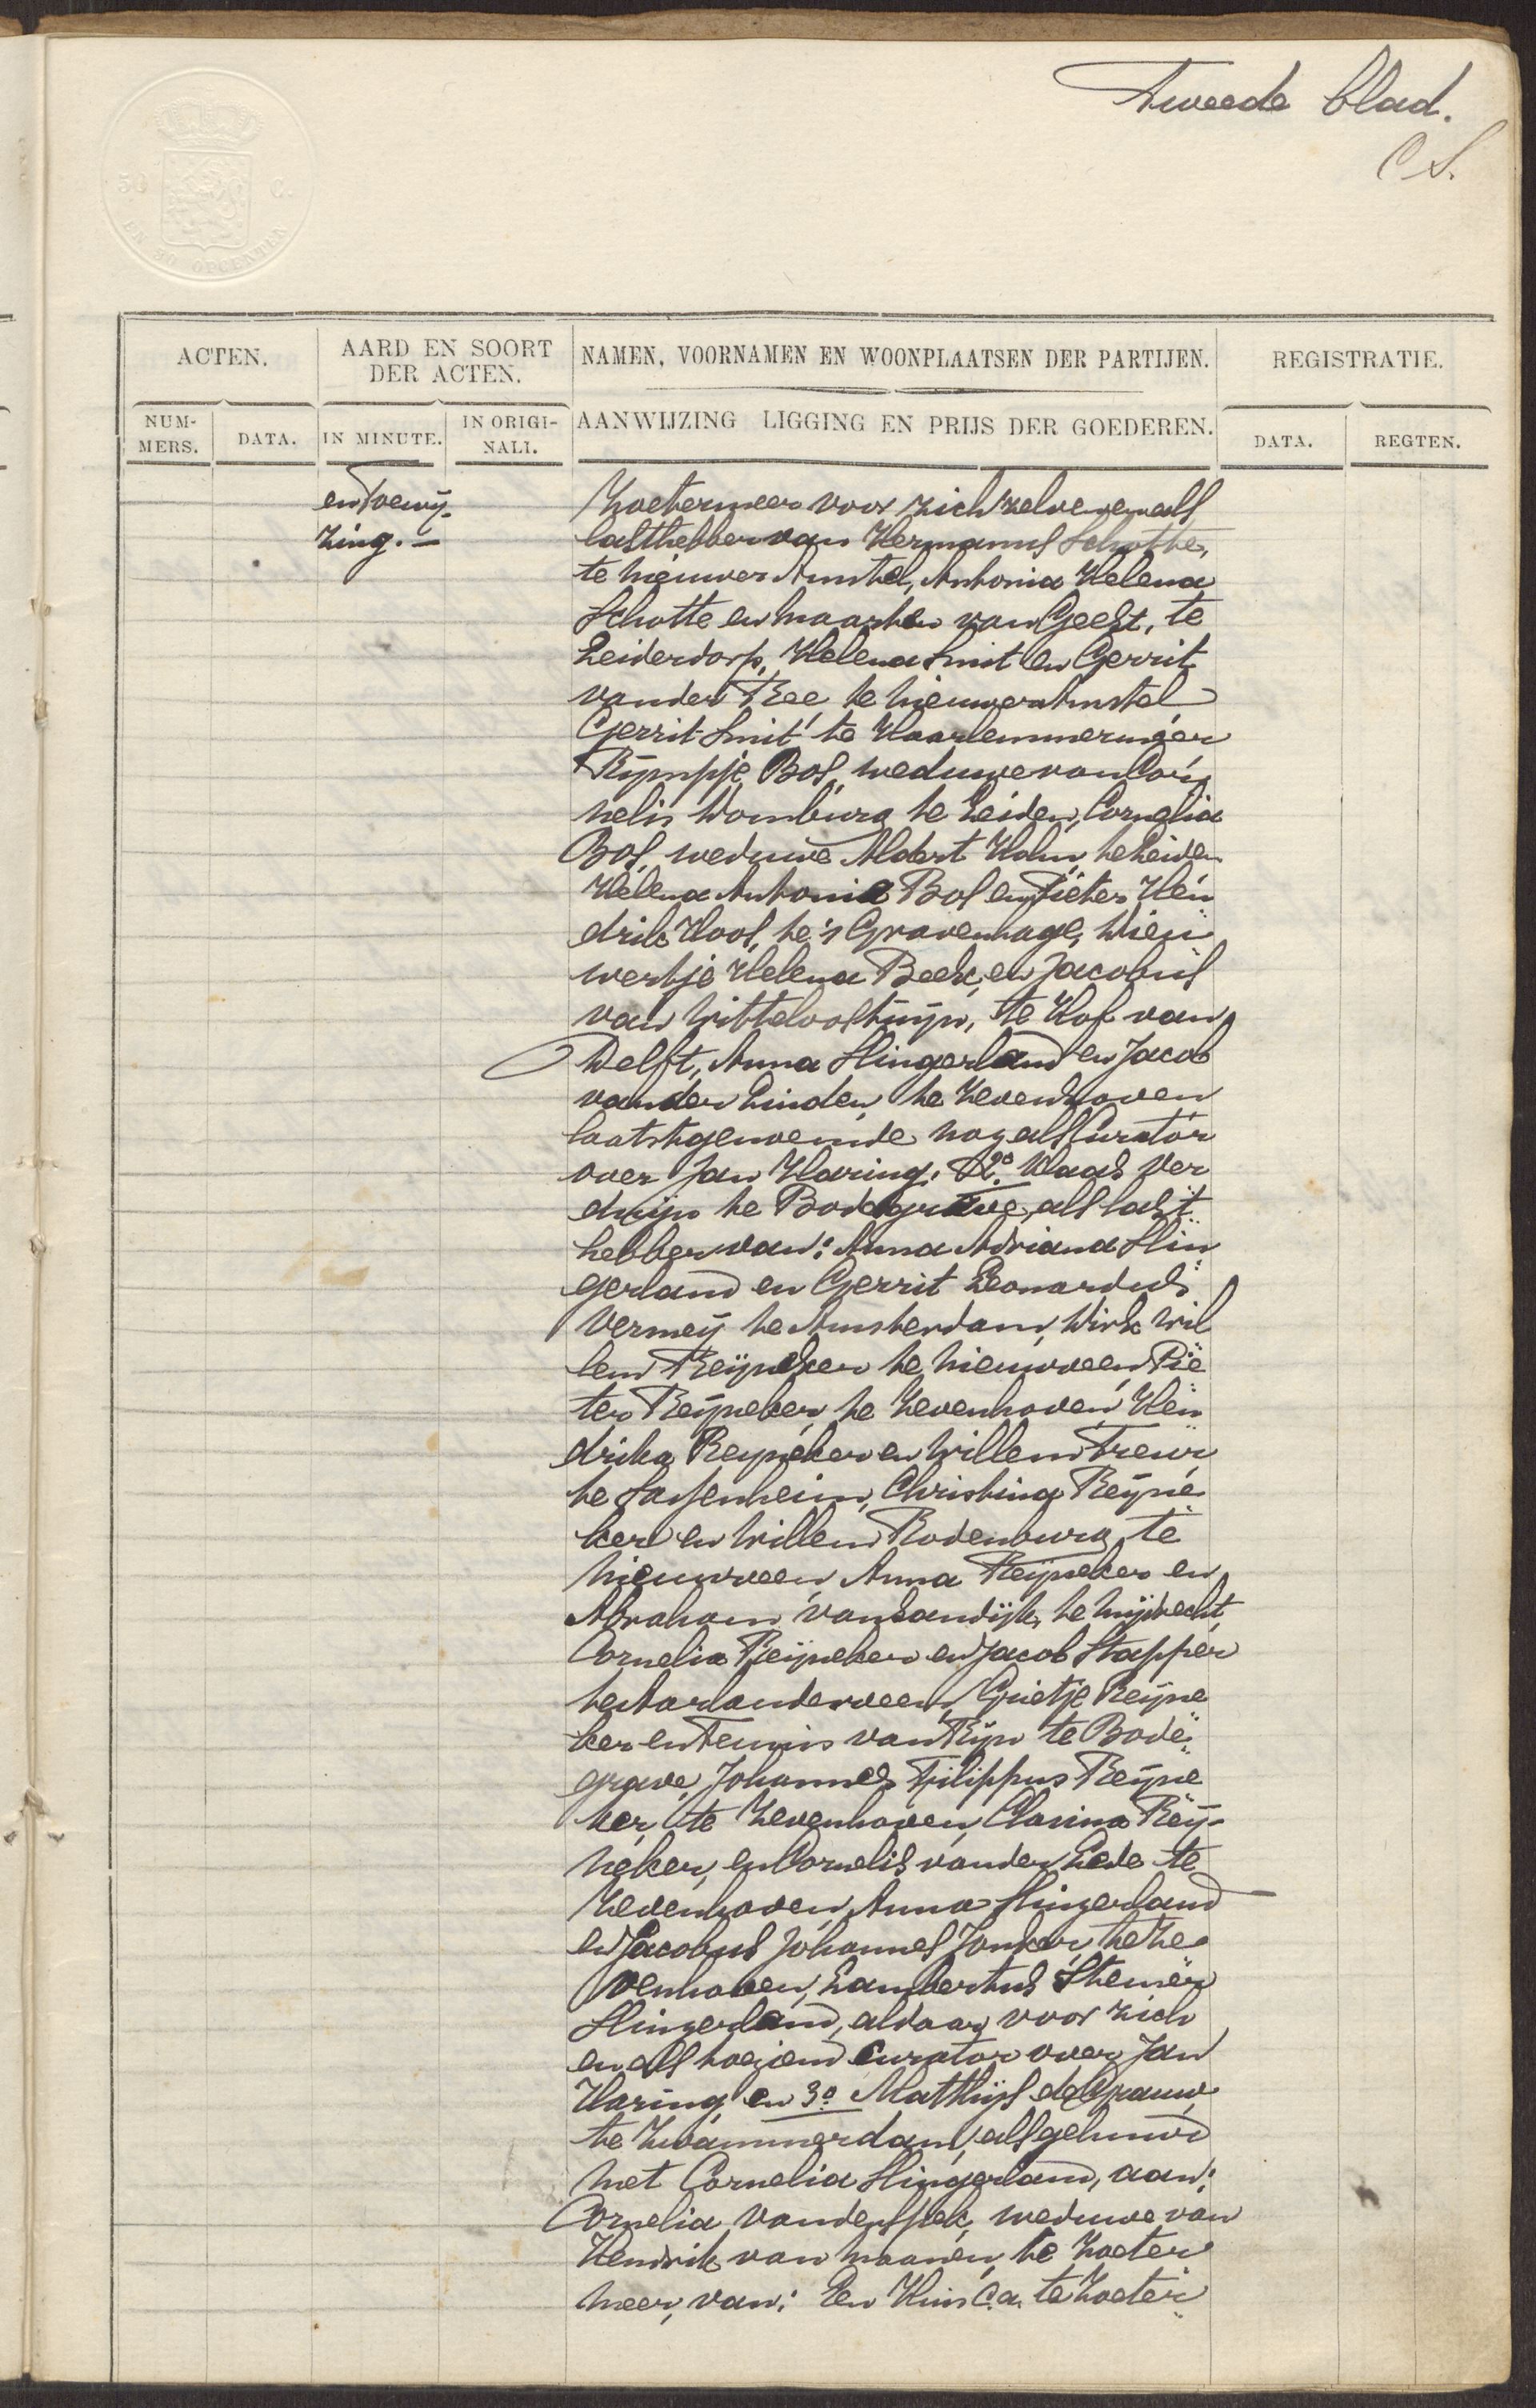 Tweede blad.
C S.
50 C.
EN 30 OPCENTEN
ACTEN.
AARD EN SOORT
DER ACTEN.
NAMEN, VOORNAMEN EN WOONPLAATSEN DER PARTIJEN.
REGISTRATIE.
NUM-
MERS.
DATA.
IN MINUTE.
IN ORIGI-
NALI.
AANWIJZING LIGGING EN PRIJS DER GOEDEREN.
DATA.
REGTEN.
en Toewij-
zing. —
Zoetermeer voor zich zelve en als
lasthebber van Hermanus Schotte,
te Nieuwer Amstel, Antonia Helena
Schotte en Maarten van Geest, te
Leiderdorp, Helena Smit en Gerrit
van der Ree te Nieuwer Amstel
Gerrit Smit te Haarlemmermeer
Rijmpje Bos, weduwe van Cor
nelis Domburg te Leiden, Cornelia
Bos, weduwe Aldert Hahn, te Leiden
Helena Antonia Bos en Pieter Hen
drik Hoos, te 's Gravenhage, Dieu
wertje Helena Beek en Jacobus
van Witteloostuijn, te Hof van
Delft, Anna Slingerland en Jacob
van der Linden te Zevenhoven
laatstgenoemde nog als Curator
over Jan Haring; 2o. Klaas Ver
duijn te Bodegrave, als last
hebber van: Anna Adriana Slin
gerland en Gerrit Leonardus
Vermeij te Amsterdam, Dirk Wil
lem Reijneker te Nieuwveen, Pie
ter Reijneker te Zevenhoven, Hen
drika Reijneker en Willem Treur
te Sassenheim, Christina Reijne
ker en Willem Rodenburg te
Nieuwveen, Anna Reijneker en
Abraham van Landijk te Mijdrecht,
Cornelia Reijneker en Jacob Stapper
te Aarlanderveen, Grietje Reijne
ker en Teunis van Rijn te Bode
grave, Johannes Filippus Reijne
ker, te Zevenhoven, Clasina Reij-
neker, en Cornelis van der Lede te
Zevenhoven, Anna Slingerland
en Jacobus Johannes Jonker te Ze
venhoven, Lambertus Stemer
Slingerland, aldaar voor zich
en als toeziend Curator over Jan
Haring en 3o. Matthijs de Grauw
te Zwammerdam, als gehuwd
met Cornelia Slingerland, aan:
Cornelia van der Spek, weduwe van
Hendrik van Maanen, te Zoeter
meer, van: Een Huis c.a. te Zoeter